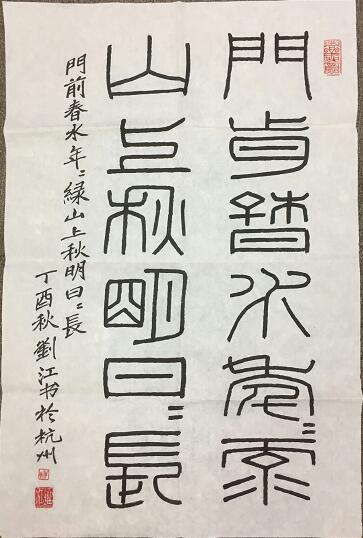 門前春水年〻綠
山上秋明日〻長
門前春水年〻緑山上秋明日〻長
丁酉秋劉江书於杭州